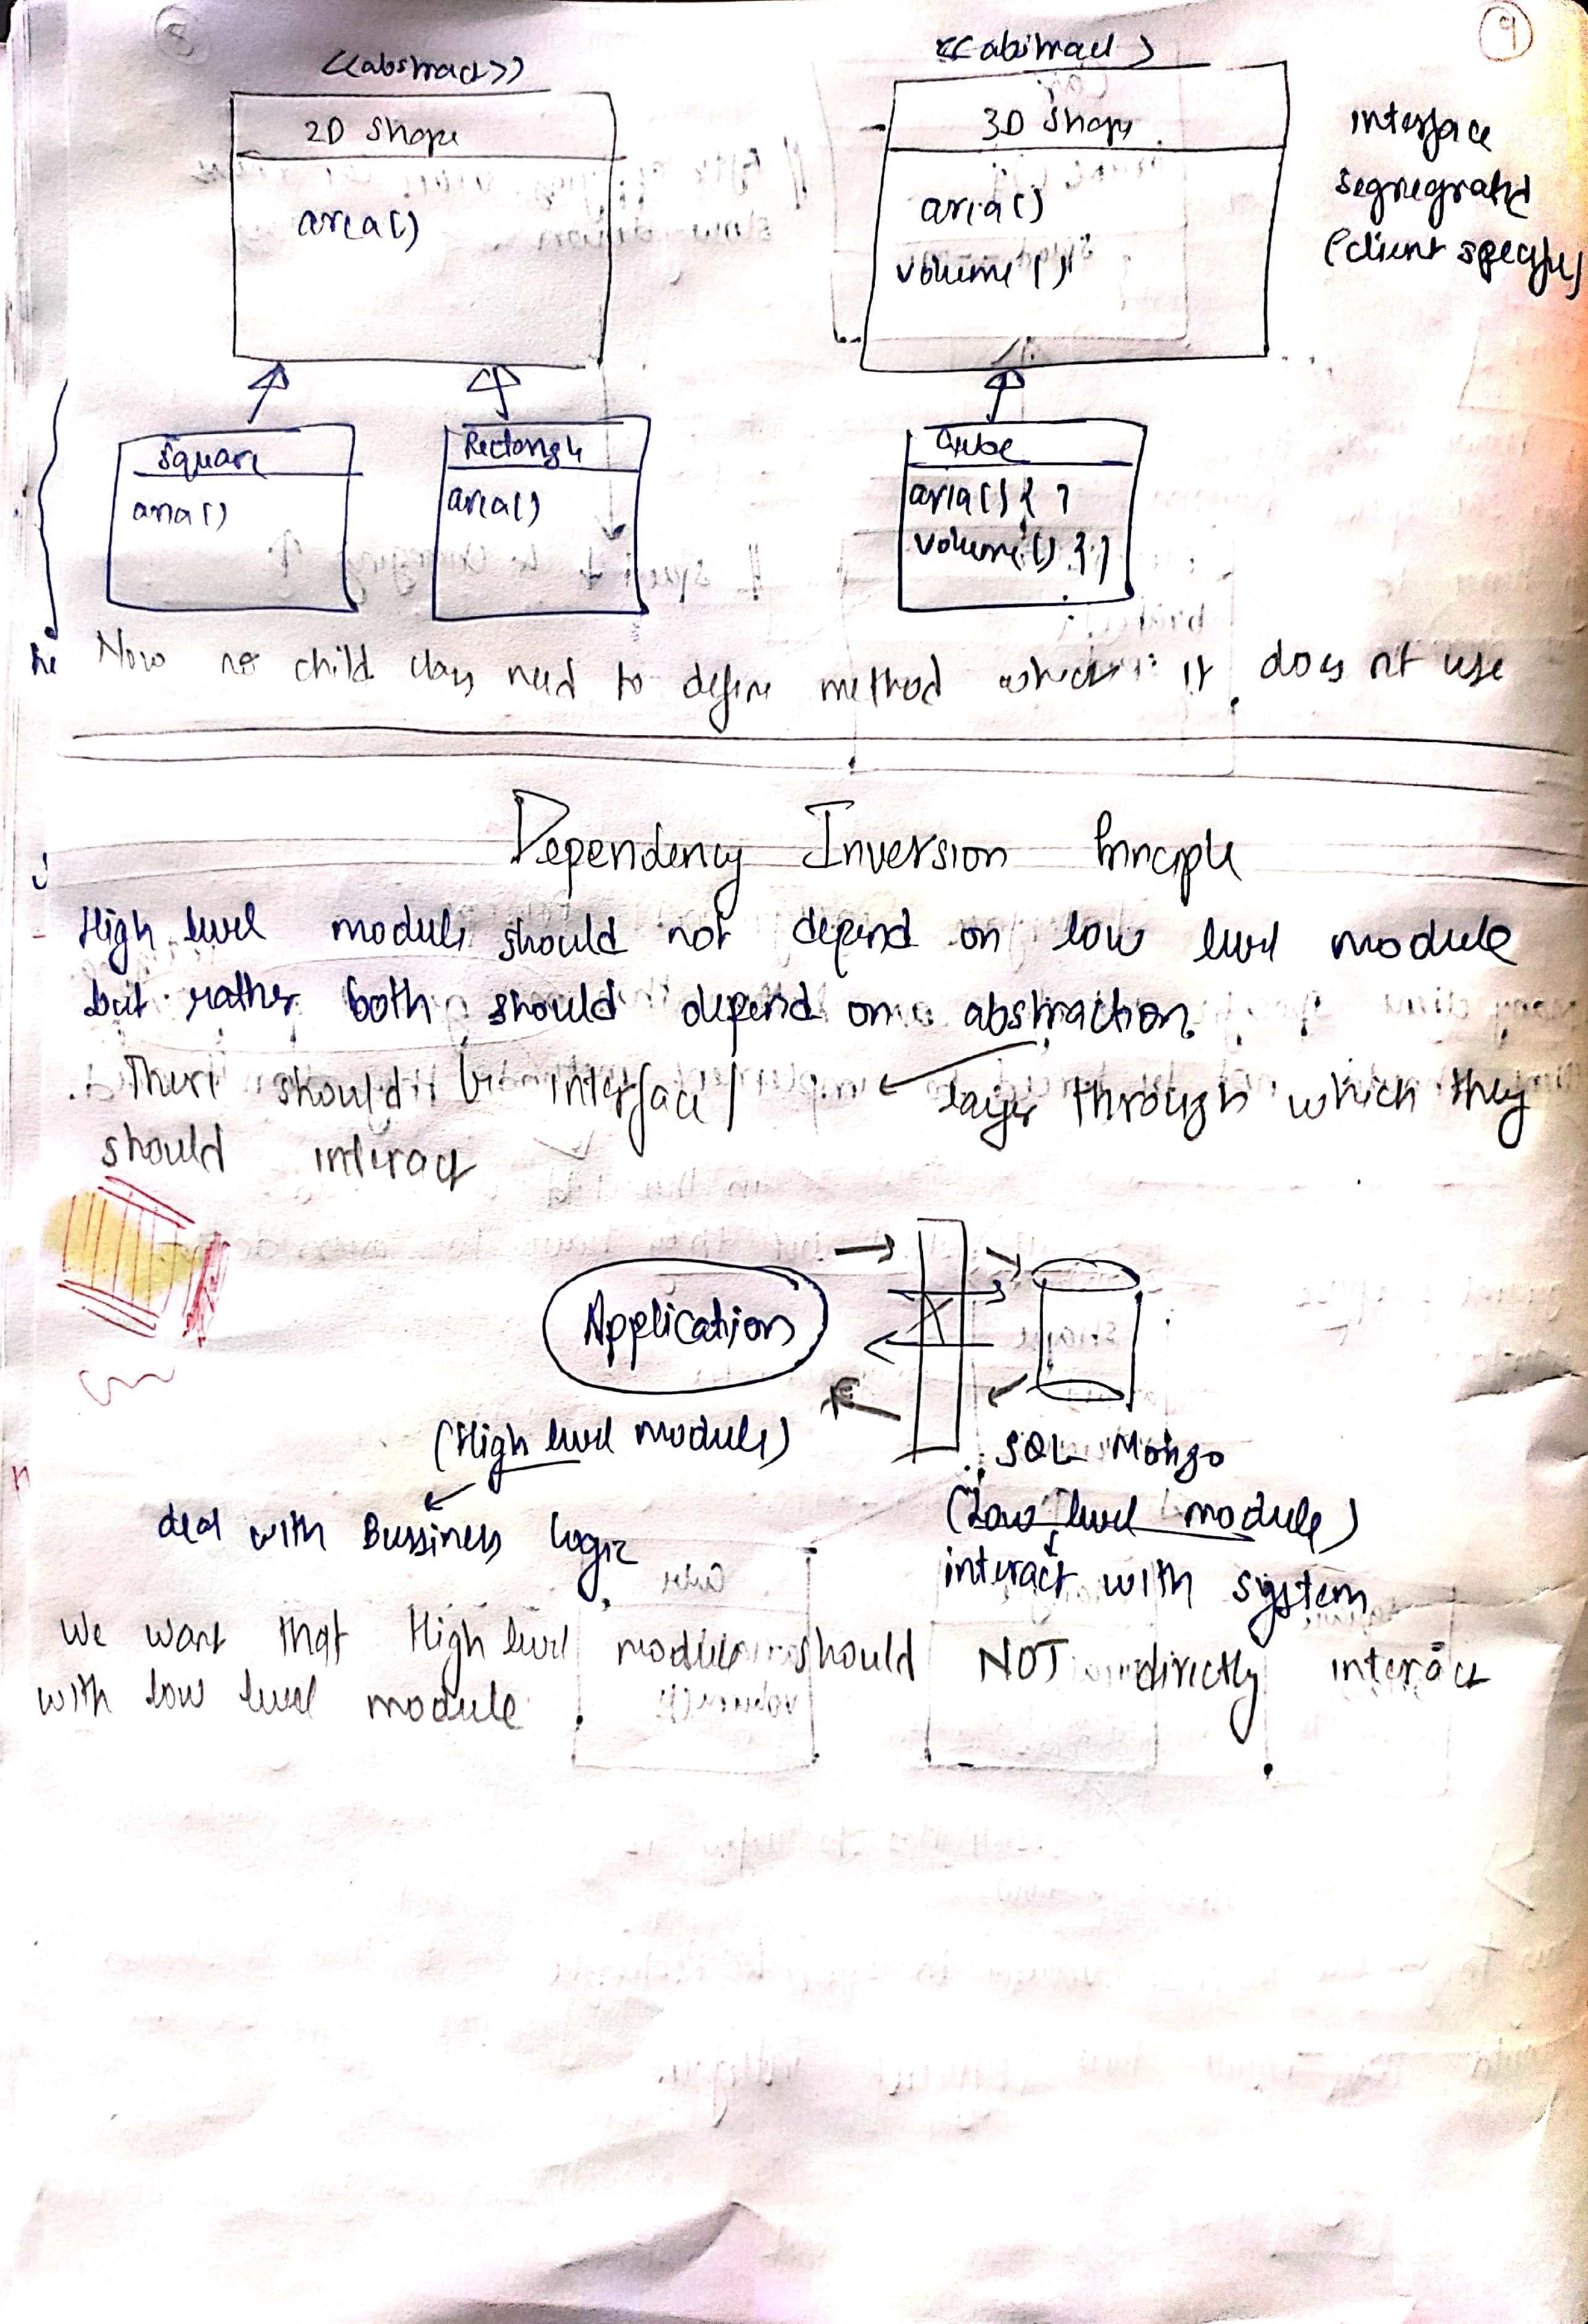 9
<<abstract>>
2D Shape
area()
<<abstract>
3D Shape
area()
volume()
interface
segregrated
(client specific)
Square
area()
Rectangle
area()
Cube
area() { }
volume() { }
Now no child class need to define method which it does nt use
Dependency Inversion Principle
High level module should not depend on low level module
but rather both should depend on abstraction.
There should be interface / layer through which they
should interact
Application
(High level module)
deal with Bussiness logic
SQL Mongo
(Low level module)
interact with system
We want that High level module should NOT directly interact
with low level module